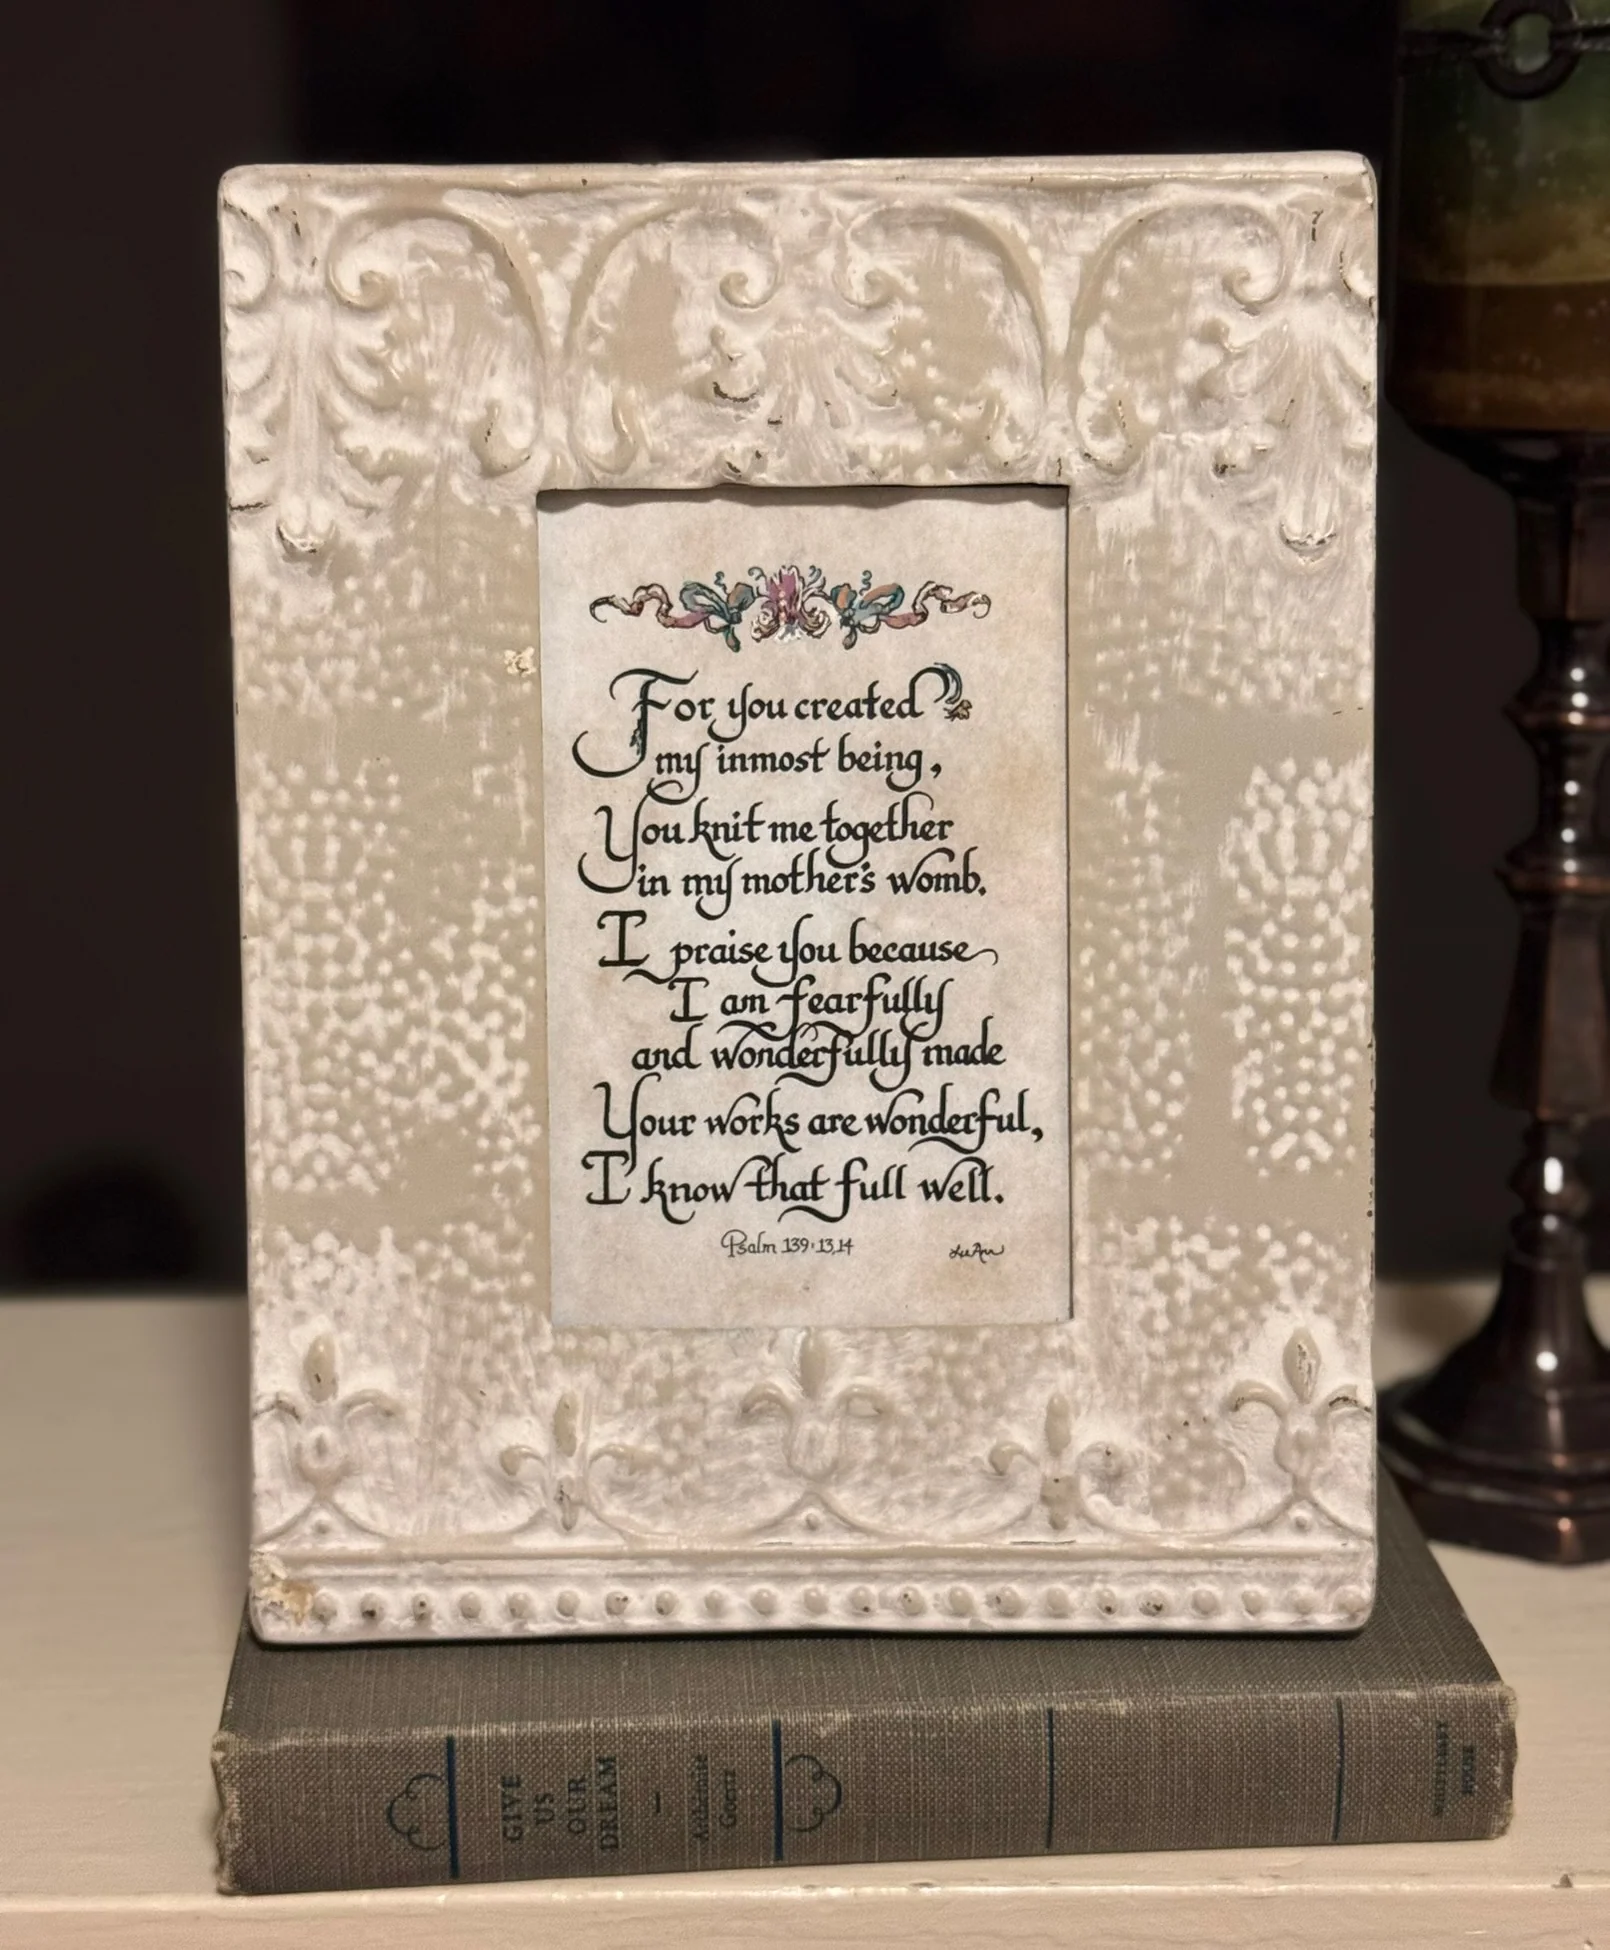 For you created
my inmost being,
You knit me together
in my mother's womb.
I praise you because
I am fearfully
and wonderfully made
Your works are wonderful,
I know that full well.
Psalm 139:13,14
LeeAnn
GIVE
US
OUR
DREAM
—
Arthémise
Goertz
WHITTLESEY
HOUSE